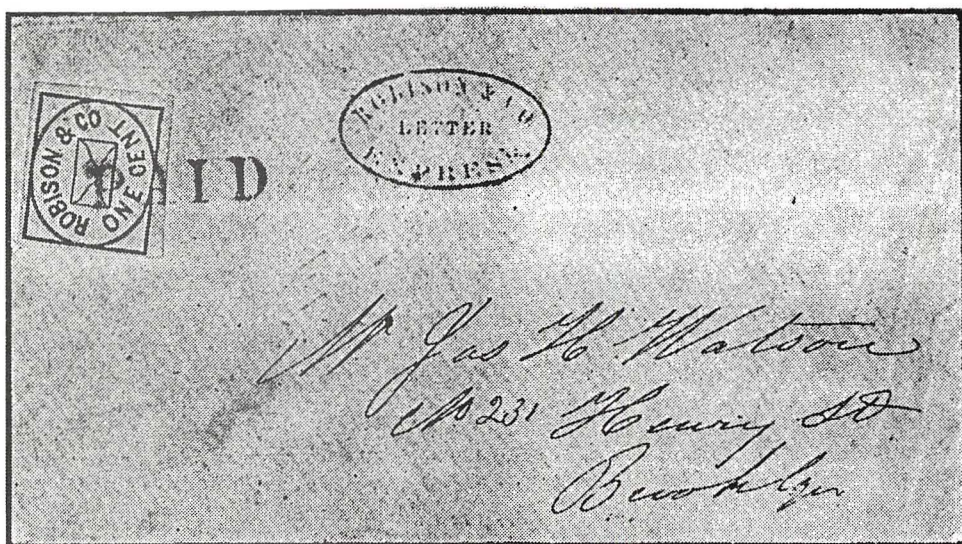 ROBISON & CO
ONE CENT
PAID
ROBISON & CO
LETTER
EXPRESS.
Mr Jas H Watson
No 231 Henry St
Brooklyn